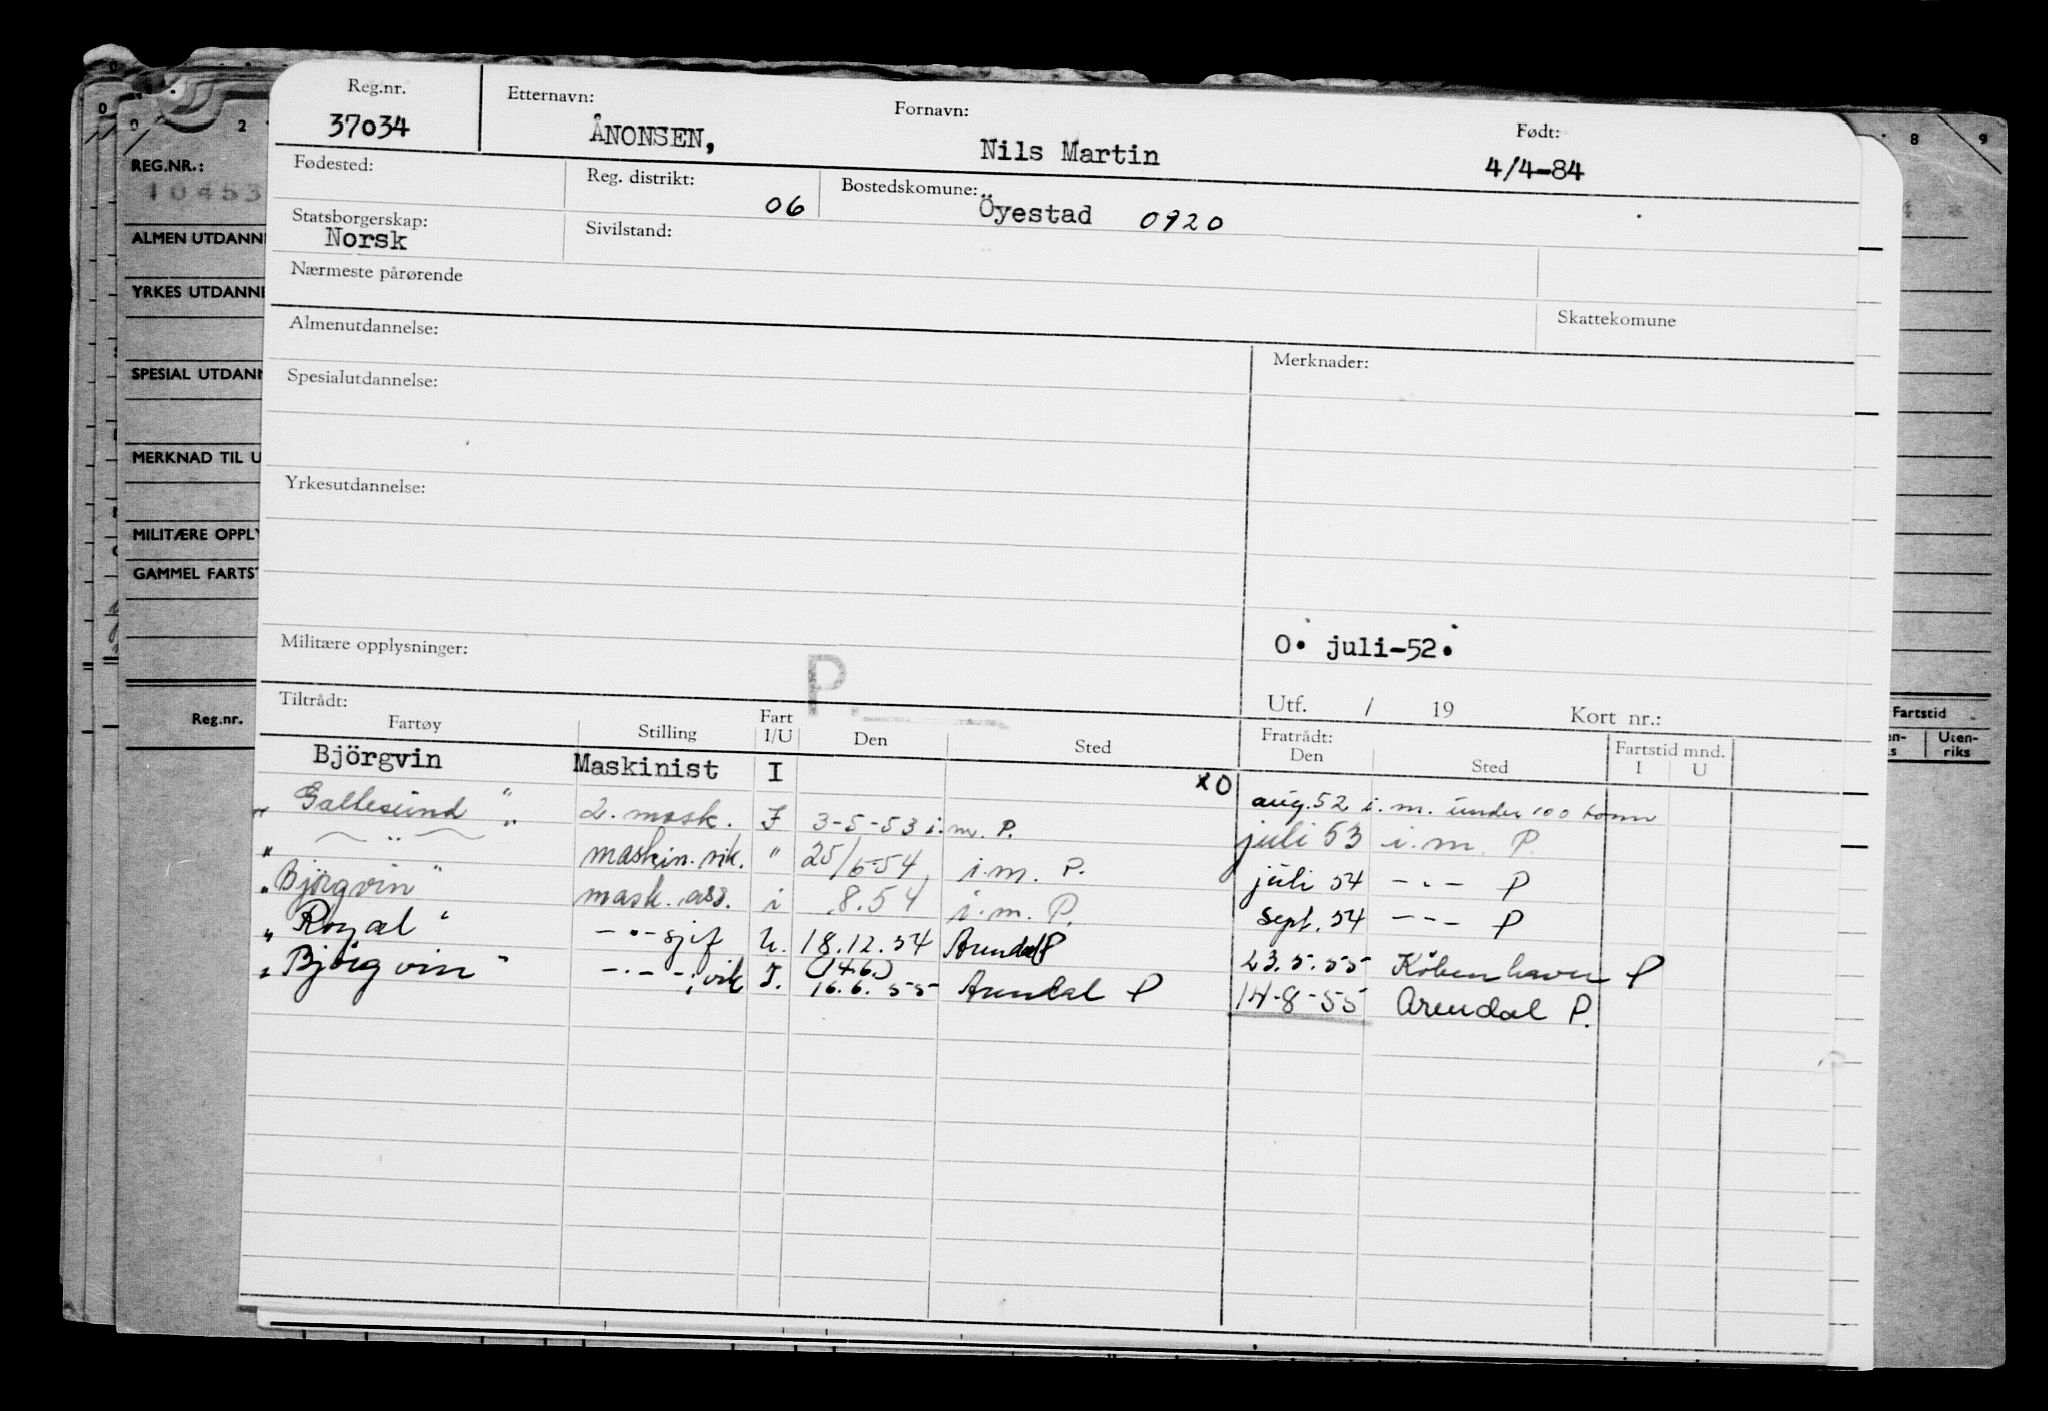 Reg.nr. Etternavn: Fornavn: Født:
37034 ÅNONSEN, Nils Martin 4/4-84
Fødested: Reg. distrikt: 06 Bostedskomune: Öyestad 0920
Statsborgerskap: Norsk Sivilstand:
Nærmeste pårørende
Almenutdannelse: Skattekomune
Spesialutdannelse: Merknader:
Yrkesutdannelse:
Militære opplysninger: O. juli-52.
P.
Utf. / 19 Kort nr.:
Tiltrådt: Fratrådt: Fartstid mnd.
Fartøy Stilling Fart I/U Den Sted Den Sted I U
Björgvin Maskinist I xO aug. 52 i. m. under 100 tonn
" Gallesund " 2. mask. I 3-5-53 i.m. P. juli 53 i.m. P.
" — " — " maskin. vik. " 25/6-54 i.m. P. juli 54 -"- P
" Björgvin " mask. ass. i 8.54 i.m. P. sept. 54 -"- P
" Royal " -"- sjef U. 18.12.54 Arendal P 23.5.55 København P
" Björgvin " -"- vik I. (14.6.) 16.6.55 Arendal P 14-8-55 Arendal P.
REG.NR.:
10453
ALMEN UTDANNE
YRKES UTDANNE
SPESIAL UTDANN
MERKNAD TIL U
MILITÆRE OPPLY
GAMMEL FARTST
Reg.nr.
8 9
Fartstid
en-s Uten-riks